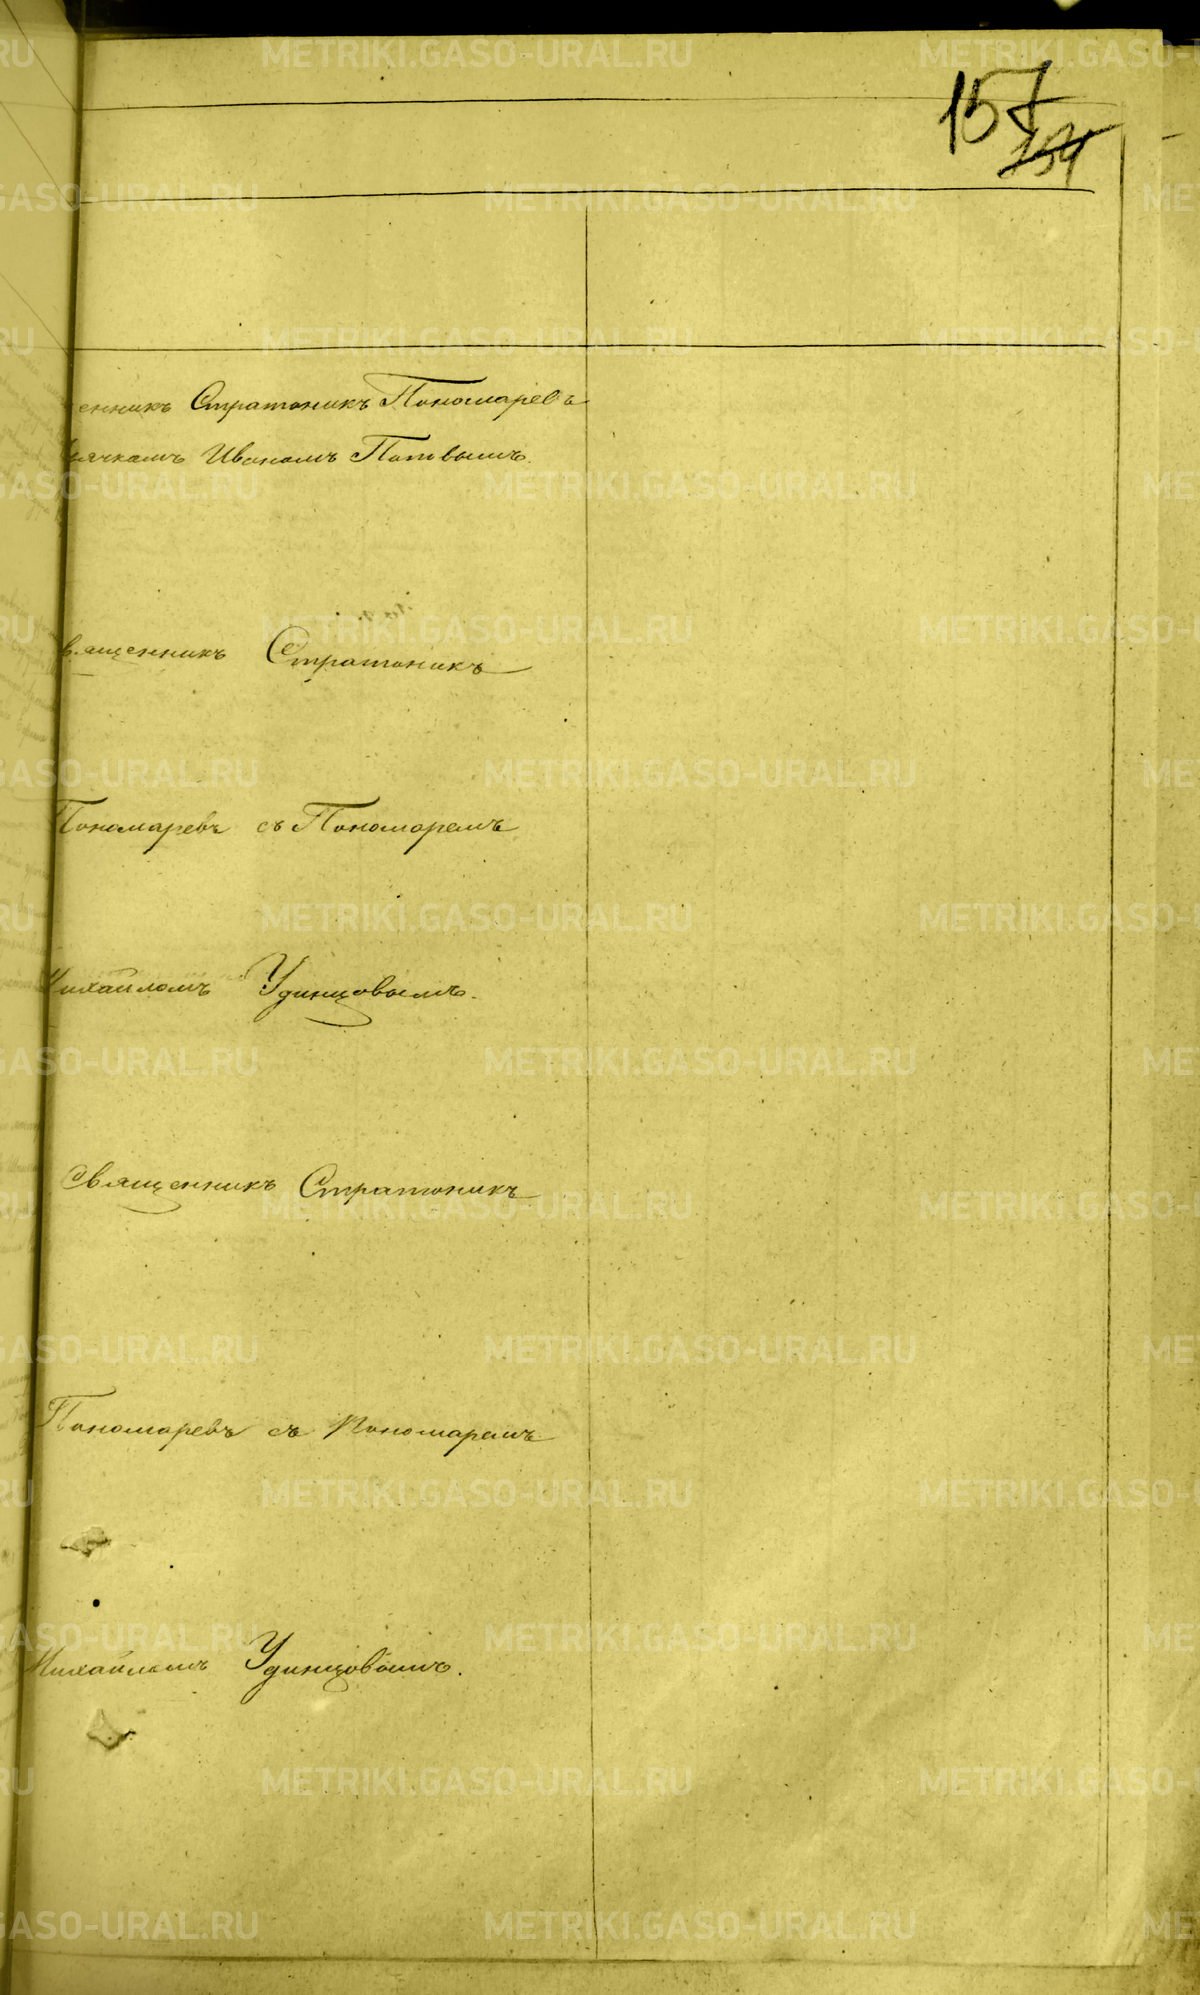 157
154
енникъ Стратоникъ Пономаревъ
ячкомъ Иваномъ Поповымъ.
вященникъ Стратоникъ
Пономаревъ съ Пономаремъ
Михаиломъ Удинцовымъ.
Священникъ Стратоникъ
Пономаревъ съ Пономаремъ
Михаиломъ Удинцовымъ.
METRIKI.GASO-URAL.RU